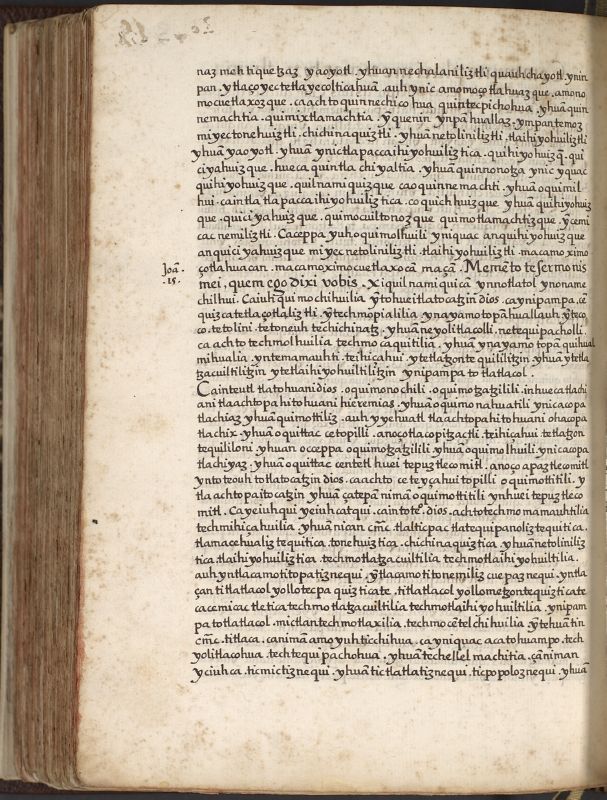 naz mehtiquetzaz yaoyotl . yhuan nechalaniliztli quauhchayotl ynin
pan . ytlaçoyectetlayecolticahuã . auh ynic amo moçotlahuazque . amo no
mocuetlaxozque . ca achto quinnechicohua quintecpichohua . yhuã quin
nemachtia . quimixtlamachtia . ỹ quenin ynpã huallaz . ympan temoz
miyec tonehuiztli . chichinaquiztli . yhuã netoliniliztli . tlaihiyohuiliztli
yhuã yaoyotl . yhuã ynic tlapaccaihiyohuiliztica . quihiyohuizq̃ . qui
ciyahuizque . hueca quintlachiyaltia . yhuã quinnonotza ynic yquac
quihiyohuizque . quilnamiquizque ca oquinnemachti . yhuã oquimil
hui . cain tlatlapaccaihiyohuiliztica . coquichhuizque yhuã quihiyohuiz
que . quiciyahuizque . quimocuiltonozque quimotlamachtizque . ỹ cemi
cac nemiliztli . Ca ceppa yuh oquimolhuili yniquac anquihiyohuizque
anquiciyahuizque miyec netoliniliztli . tlaihiyohuiliztli . macamo ximo
çotlahuacan . macamo ximocuetlaxocã maçã . Memẽto te sermonis
Joã. 15. mei, quem ego dixi vobis . xiquilnamiquicã ynnotlatol ynoname
chilhui . Caiuhqui mochihuilia ỹ tohueitlatocatzin dios . ca ynipampa , cẽ
quizca tetlaçotlaliztli . ỹ techmopialilia ynayamo topã huallauh . ỹ teco
co . tetolini . tetoneuh techichinatz . yhuã ne yolitlacolli . netequipacholli .
ca achto techmolhuilia techmocaquitilia . yhuã ynayamo topã quihual
mihualia . yntemamauhti . teihiçahui . ytetlatzontequililitzin . yhuã ytetla
tzacuiltilitzin ytetlaihiyohuiltilitzin ynipampa totlatlacol .
Cainteutl tlatohuani dios . oquimonochili . oquimotzatzilili . inhueca tlachi
ani tlaachtopahitohuani hieremias . yhuã oquimonahuatili ynic acopa
tlachiaz yhuã quimottiliz . auh yyehuatl tlaachtopahitohuani ohacopa
tlachix . yhuã oquittac ce topilli . anoço tlacopitzactli . teihiçahui . tetlatzon
tequililoni . yhuan occeppa oquimotzatzilili yhuã oquimolhuili . ynic acopa
tlachiyaz . yhuã oquittac centetl huei tepuztlecomitl . anoço apaztlecomitl
ynto teouh totlatocatzin dios . ca achto ce teyçahui topilli oquimottitili . y
tlaachtopaitocatzin yhuã çatepã nimã oquimottitili ynhuei tepuztleco
mitl . Ca yeiuhqui yeiuhcatqui . caintoteº. dios . achto techmomamauhtilia
techmihiçahuilia . yhuã nican cm̃c . tlalticpac tlatequipanoliztequitica .
tlamacehualiztequitica . tonehuiztica . chichinaquiztica . yhuã netoliniliz
tica . tlaihiyohuiliztica . techmotlatzacuiltilia techmotlaihiyohuiltilia .
auh yntlacamo titopatiznequi . ỹtlacamo titonemilizcuepaznequi . yntla
çan titlatlacolyollotecpa quizticate . titlatlacolyollometzontequizticate
ca cemicac tletica techmotlatzacuiltilia techmotlaihiyohuiltilia . ynipam
pa totlatlacol . mictlan techmotlaxilia . techmocẽtelchihuilia ỹ tehuãtin
cm̃c . titlaca . ca nimã amo yuh ticchihua . ca yniquac aca tohuampo . tech
yolitlacohua . techtequipachohua . yhuã techellelmachitia . çã niman
yciuhca . ticmictiznequi . yhuã tictlatlatiznequi . ticpopoloznequi . yhuã